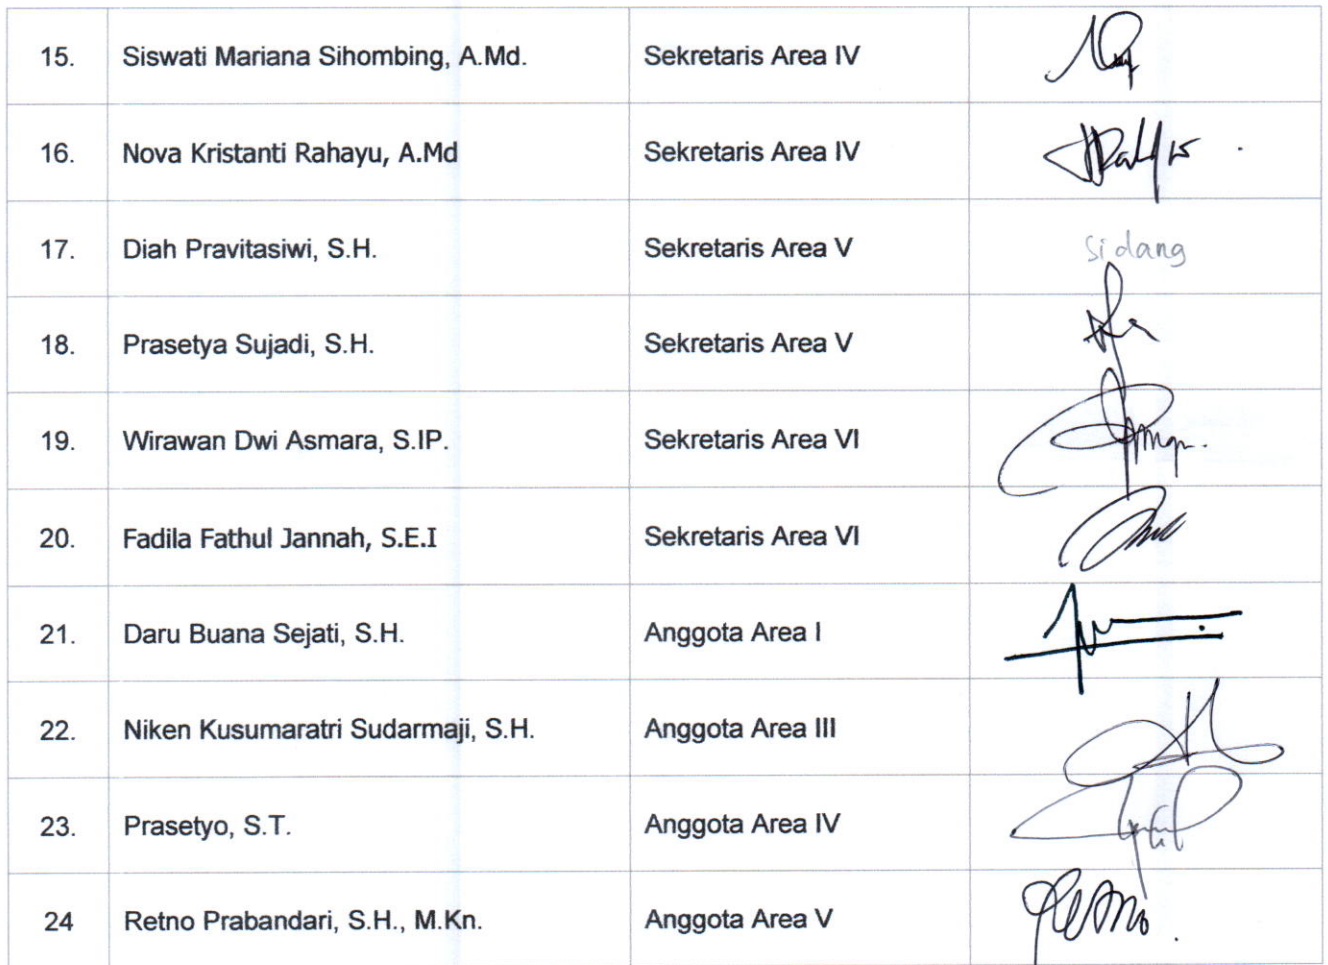 15. Siswati Mariana Sihombing, A.Md. Sekretaris Area IV
16. Nova Kristanti Rahayu, A.Md Sekretaris Area IV
17. Diah Pravitasiwi, S.H. Sekretaris Area V Sidang
18. Prasetya Sujadi, S.H. Sekretaris Area V
19. Wirawan Dwi Asmara, S.IP. Sekretaris Area VI
20. Fadila Fathul Jannah, S.E.I Sekretaris Area VI
21. Daru Buana Sejati, S.H. Anggota Area I
22. Niken Kusumaratri Sudarmaji, S.H. Anggota Area III
23. Prasetyo, S.T. Anggota Area IV
24 Retno Prabandari, S.H., M.Kn. Anggota Area V